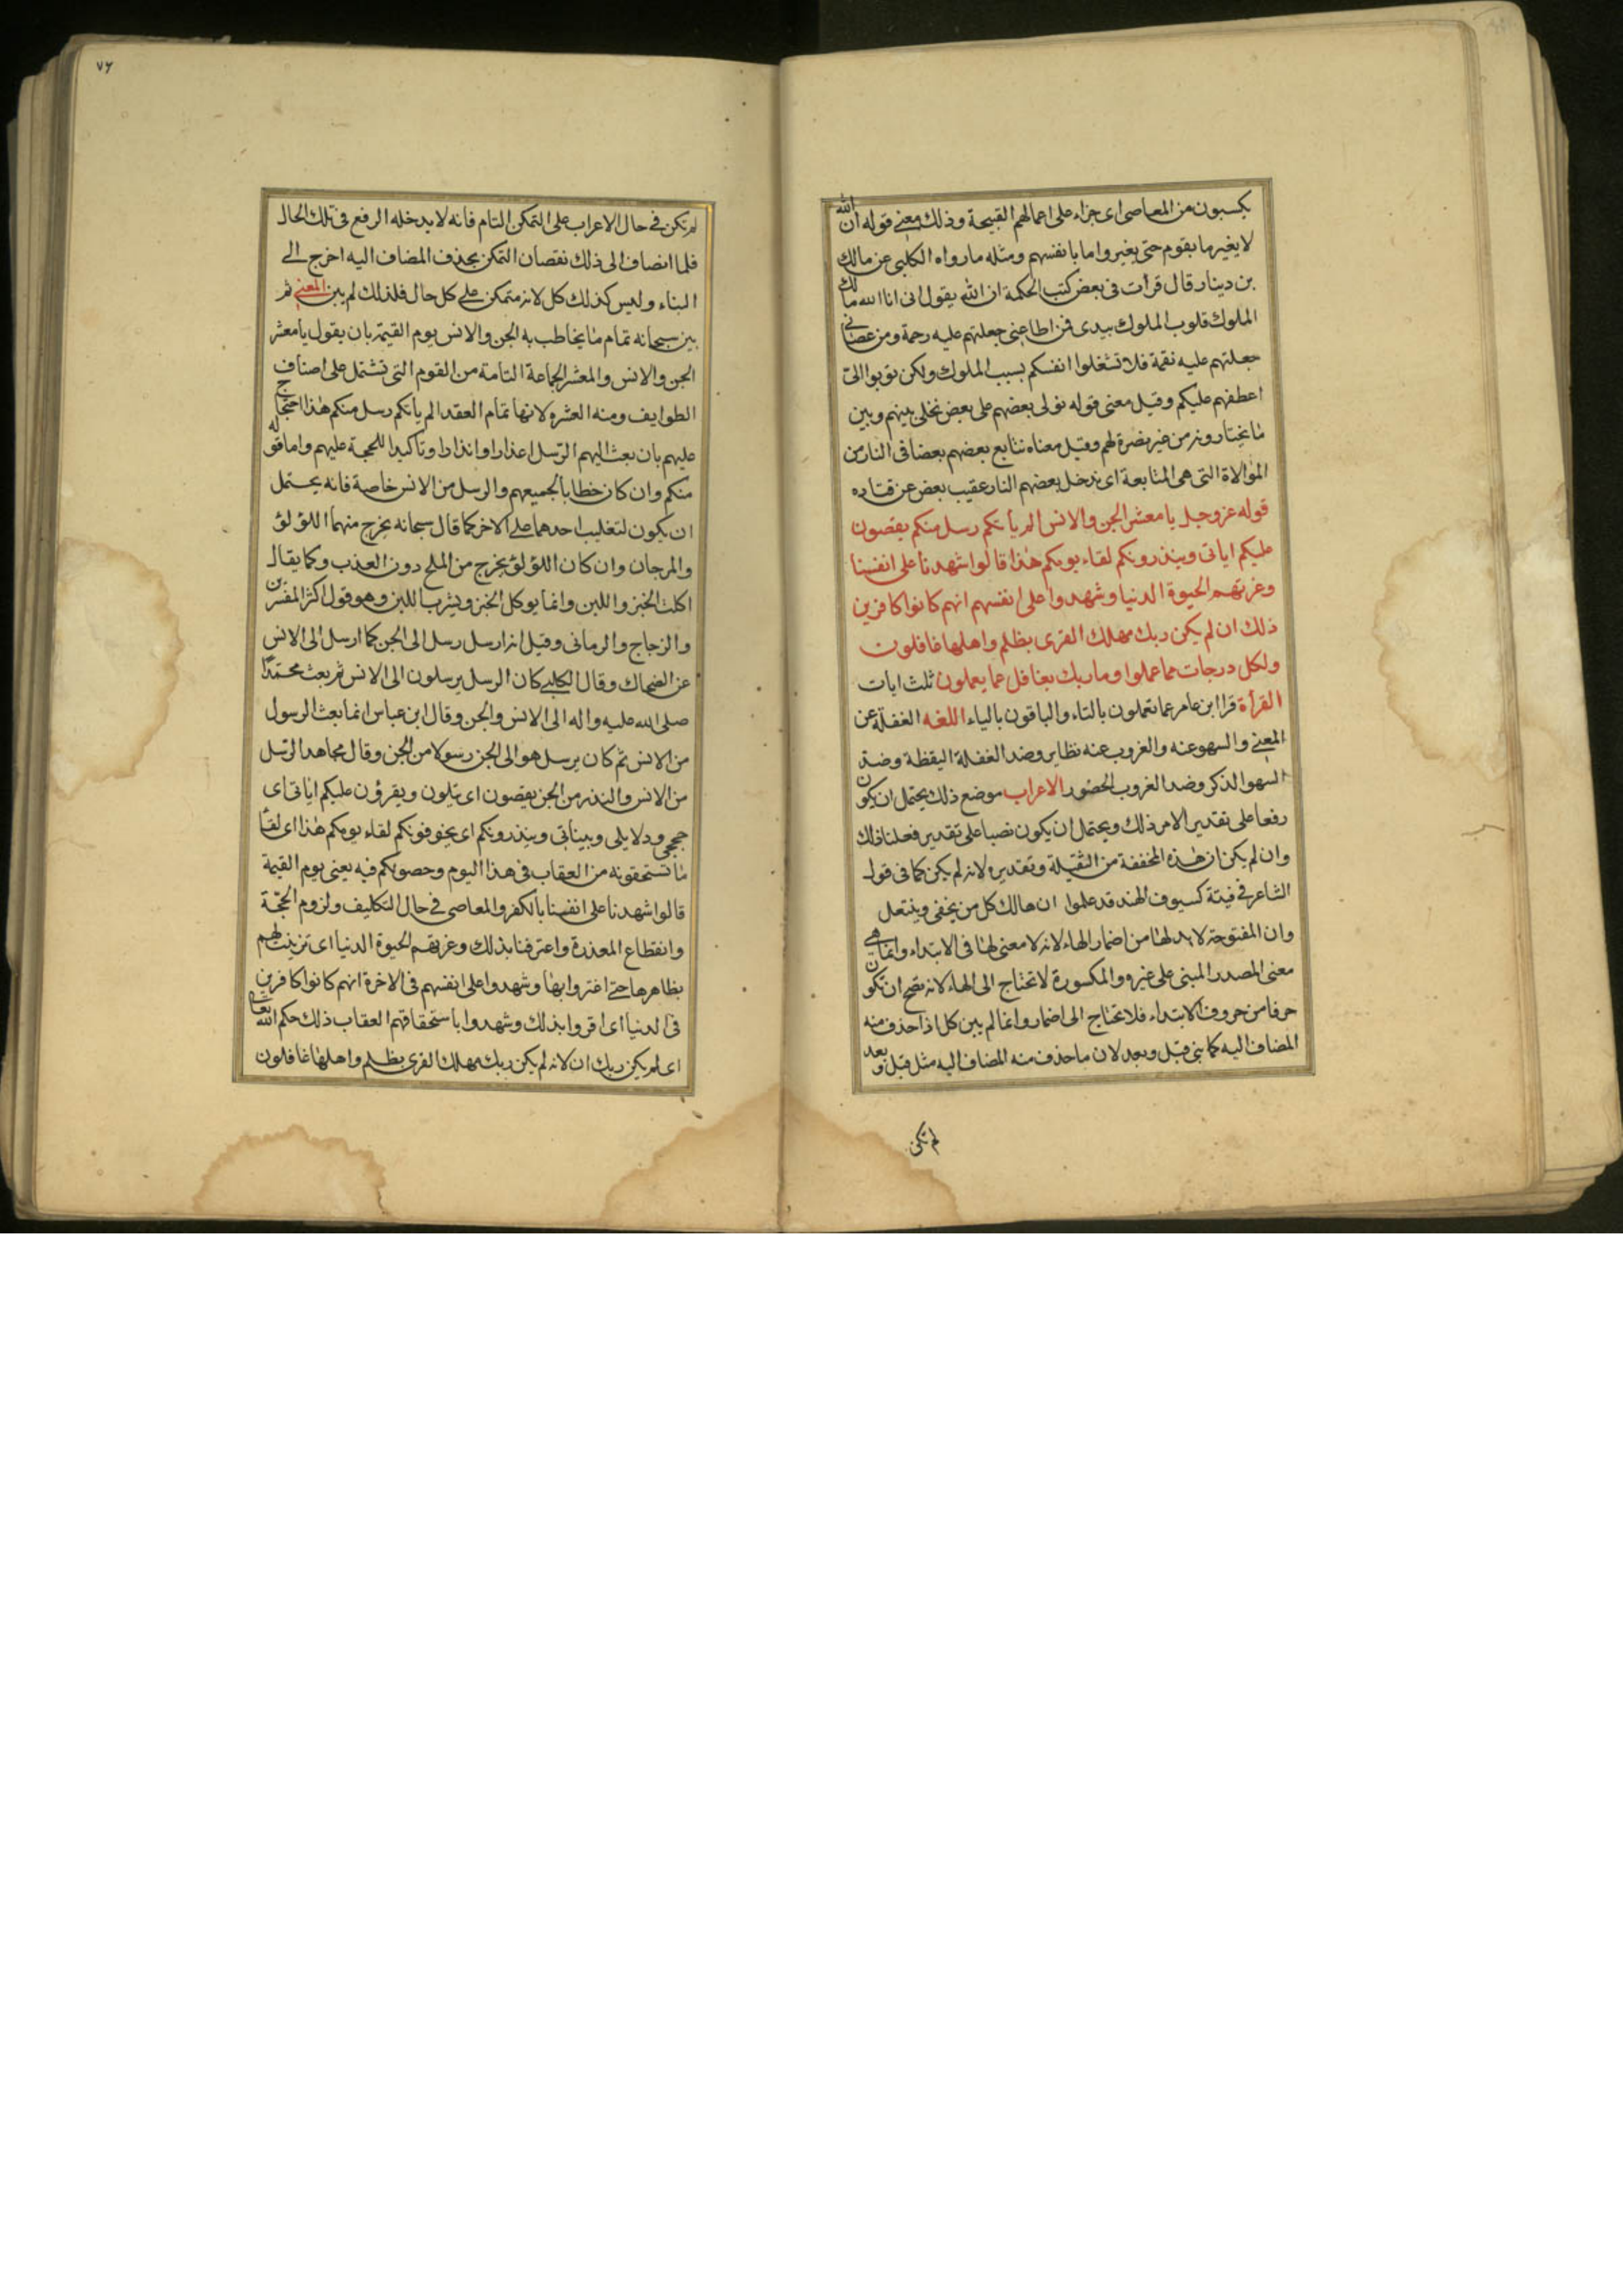 يكسبون من المعاصى اى جزاء على اعمالهم القبيحة وذلك معنى قوله ان الله
لا يغير ما بقوم حتى يغيروا ما بانفسهم ومثله ما رواه الكلبى عن مالك
بن دينار قال قرأت فى بعض كتب الحكمة ان الله يقول انى انا الله مالك
الملوك قلوب الملوك بيدى فمن اطاعنى جعلتهم عليه رحمة ومن عصانى
جعلتهم عليه نقمة فلا تشغلوا انفسكم بسبب الملوك ولكن توبوا الىّ
اعطفهم عليكم وقيل معنى قوله نولى بعضهم على بعض نخلى بينهم وبين
ما يختارونه من غير نصرة لهم وقيل معناه نتابع بعضهم بعضا فى النار من
الموالاة التى هى المتابعة اى ندخل بعضهم النار عقيب بعض عن قتاده
قوله عز وجل يا معشر الجن والانس الم يأتكم رسل منكم يقصون
عليكم اياتى وينذرونكم لقاء يومكم هذا قالوا شهدنا على انفسنا
وغرتهم الحيوة الدنيا وشهدوا على انفسهم انهم كانوا كافرين
ذلك ان لم يكن ربك مهلك القرى بظلم واهلها غافلون
ولكل درجات مما عملوا وما ربك بغافل عما يعملون ثلث ايات
القرأة قرا ابن عامر عما تعملون بالتاء والباقون بالياء اللغه الغفلة عن
المعنى والسهو عنه والغروب عنه نظاير وضد الغفلة اليقظة وضد
السهو الذكر وضد الغروب الحضور الاعراب موضع ذلك يحتمل ان يكون
رفعا على تقدير الامر ذلك ويحتمل ان يكون نصبا على تقدير فعلنا ذلك
وان لم يكن ان هذه المخففة من الثقيلة وتقديره لانه لم يكن كما فى قول
الشاعر فى فيتة كسيوف الهند قد علموا ان هالك كل من يخفى وينتعل
وان المفتوحة لا بد لها من اضمار الهاء لانه لا معنى لها فى الابتداء وانما هى
معنى المصدر المبنى على غيره والمكسورة لا تحتاج الى الهاء لانه يصح ان تكون
حرفا من حروف الابتداء فلا تحتاج الى اضمار وانما لم يبن كل اذا حذف منه
المضاف اليه كما بنى قبل وبعد لان ما حذف منه المضاف اليه مثل قبل وبعد
لم تكن
٧٦
لم تكن فى حال الاعراب على التمكن التام فانه لا يدخله الرفع فى تلك الحال
فلما انضاف الى ذلك نقصان التمكن بحذف المضاف اليه اخرج الى
البناء وليس كذلك كل لانه متمكن على كل حال فلذلك لم يبن المعنى ثم
بين سبحانه تمام ما يخاطب به الجن والانس يوم القيمة بان يقول يا معشر
الجن والانس والمعشر الجماعة التامة من القوم التى تشتمل على اصناف
الطوايف ومنه العشرة لانها تمام العقد الم يأتكم رسل منكم هذا احتجاج
عليهم بان بعث اليهم الرّسل اعذارا وانذارا وتأكيدا للحجة عليهم واما قوله
منكم وان كان خطابا لجميعهم والرسل من الانس خاصة فانه يحتمل
ان يكون لتغليب احدهما على الاخر كما قال سبحانه يخرج منهما اللؤلؤ
والمرجان وان كان اللؤلؤ يخرج من الملح دون العذب وكما يقال
اكلت الخبز واللبن وانما يوكل الخبز ويشرب اللبن وهو قول اكثر المفسرين
والزجاج والرمانى وقيل انه ارسل رسل الى الجن كما ارسل الى الانس
عن الضحاك وقال الكلبى كان الرسل يرسلون الى الانس ثم بعث محمّدًا
صلى الله عليه واله الى الانس والجن وقال ابن عباس انما بعث الرسول
من الانس ثم كان يرسل هو الى الجن رسولا من الجن وقال مجاهد الرّسل
من الانس والنذر من الجن يقصون اى يتلون ويقرؤن عليكم اياتى اى
حججى ودلايلى وبيناتى وينذرونكم اى يخوفونكم لقاء يومكم هذا اى لقاء
ما تستحقونه من العقاب فى هذا اليوم وحصولكم فيه يعنى يوم القيمة
قالوا شهدنا على انفسنا بالكفر والمعاصى فى حال التكليف ولزوم الحجّة
وانقطاع المعذرة واعترفنا بذلك وغرتهم الحيوة الدنيا اى تزينت لهم
بظاهرها حتى اغتروا بها وشهدوا على انفسهم فى الاخرة انهم كانوا كافرين
فى الدنيا اى اقروا بذلك وشهدوا باستحقاقهم العقاب ذلك حكم الله تعالى
اى لم يكن ربك ان لانه لم يكن ربك مهلك القرى بظلم واهلها غافلون